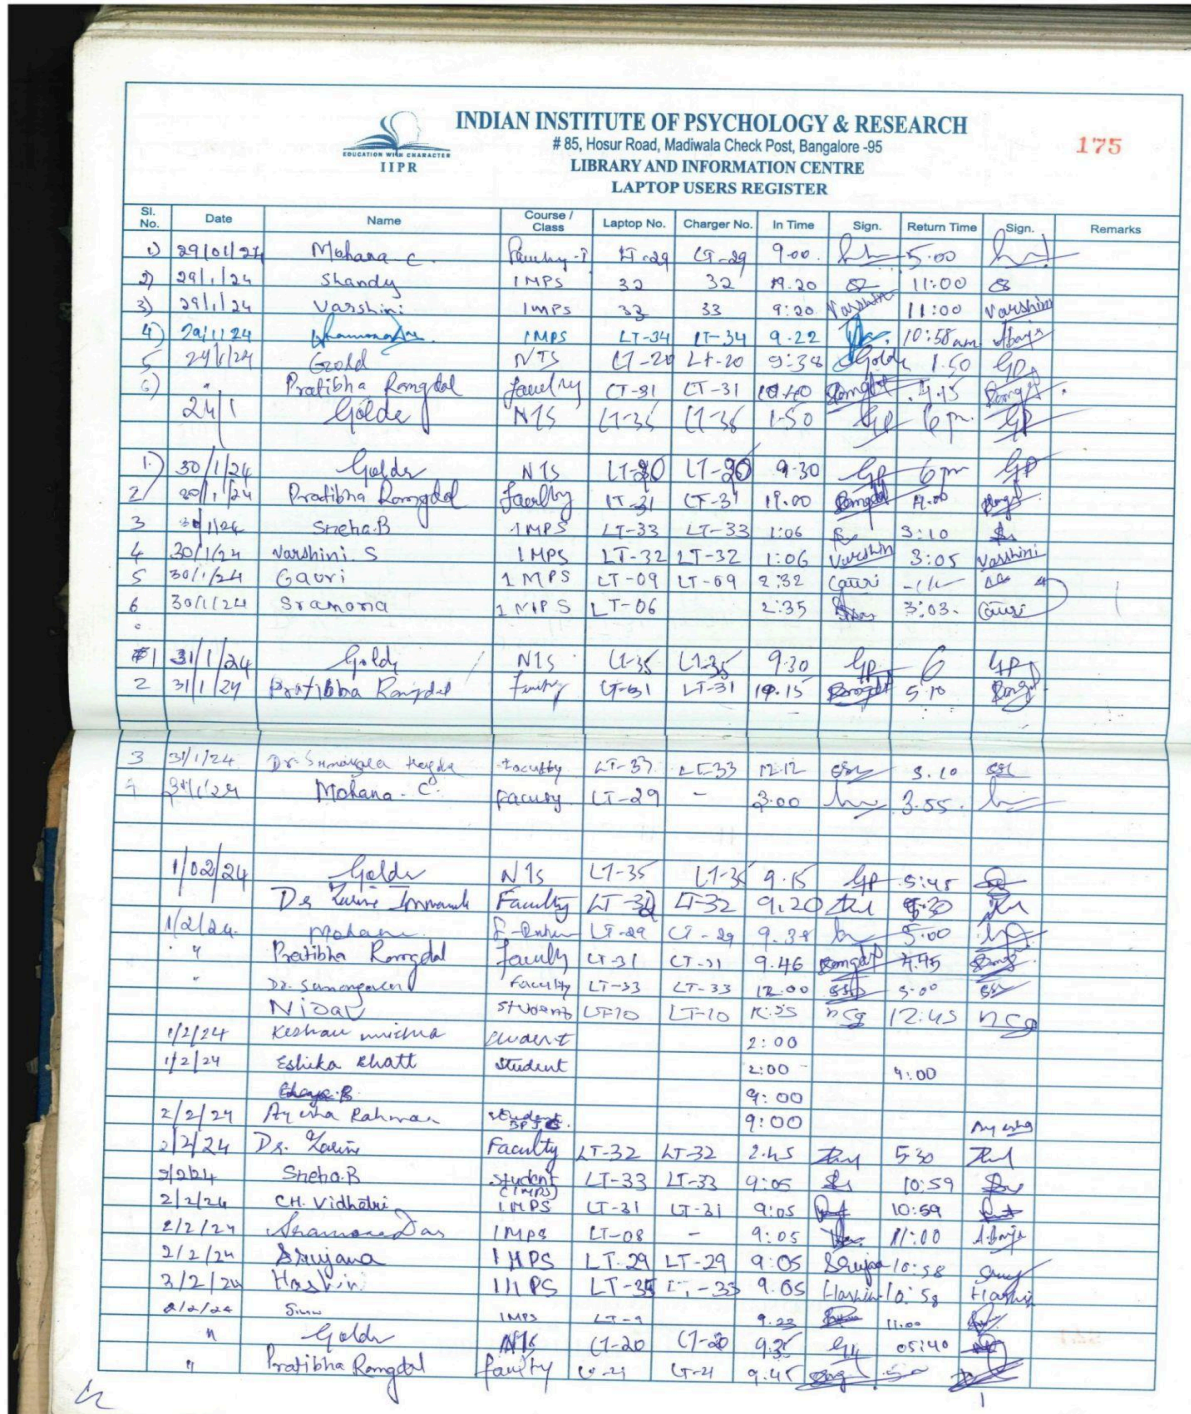 INDIAN INSTITUTE OF PSYCHOLOGY & RESEARCH
# 85, Hosur Road, Madiwala Check Post, Bangalore -95
175
EDUCATION WITH CHARACTER
IIPR
LIBRARY AND INFORMATION CENTRE
LAPTOP USERS REGISTER
Sl. No. Date Name Course / Class Laptop No. Charger No. In Time Sign. Return Time Sign. Remarks
1) 29/01/24 Mohana C. LT-29 LT-29 9.00 5.00
2) 29/1/24 Shandy 1MPS 32 32 11:00
3) 29/1/24 Varshini 1MPS 33 33 9:20 Varshini 11:00 Varshini
4) 29/1/24 1MPS LT-34 LT-34 9.22 10:58am
5 29/1/24 Gold NTS LT-20 LT-20 9:38 Golde 1.50 GP
6) " Pratibha Rongdal faculty LT-31 LT-31 10.40 Rongdal 4.45 Rongdal
Golde NTS LT-35 LT-35 1.50 GP 6pm GP
1) 30/1/24 Golde NTS 9.30 GP 6pm GP
2 30/1/24 Pratibha Rongdal faculty LT-31 LT-31 Rongdal
3 30/1/24 Sneha.B 1MPS LT-33 LT-33 1:06 3:10
4 30/1/24 Varshini.S 1MPS LT-32 LT-32 1:06 Varshini 3:05 Varshini
5 30/1/24 Gauri 1MPS LT-09 LT-09 2:32 Gauri
6 30/1/24 Sramona 1MPS LT-06 2:35 3:03 Gauri
1 31/1/24 Golde NTS LT-35 LT-35 9.30 GP 6 GP
2 31/1/24 Pratibha Rongdal LT-31 LT-31 Rongdal 5.10
3 31/1/24 Dr. Sumangala Hegde Faculty LT-33 LT-33 12.12 3.10
31/1/24 Mohana. C. Faculty LT-29 - 3.00 3.55
1/02/24 Golde NTS LT-35 LT-35 9.15 GP 5:45
Faculty LT-32 LT-32 9.20
1/2/24 Mohana LT-29 LT-29 5:00
" Pratibha Rongdal faculty LT-31 LT-31 9.46 Rongdal 4.45
" Faculty LT-33 LT-33 12.00 3.00
student LT-10 LT-10 ncg 12:45 ncg
1/2/24 student 2:00
1/2/24 Eshika Bhatt student 2:00 4:00
9:00
2/2/24 Ayesha Rahman student 9:00
2/2/24 Dr. Zarine Faculty LT-32 LT-32 2.45 5.30
2/2/24 Sneha.B student (1MPS) LT-33 LT-33 9:05 10:59
2/2/24 CH. Vidhatri 1MPS LT-31 LT-31 9:05 10:59
2/2/24 Shamona Das 1MPS LT-08 - 9:05 11:00
2/2/24 Srujana 1MPS LT.29 LT-29 9:05 Srujana 10:58
Hashini LT-35 9.05 Hashini 10:58 Hashini
2/2/24 1MPS 9.23 11.00
" Golde NTS LT-20 LT-20 05:40
" Pratibha Rongdal faculty 9.45